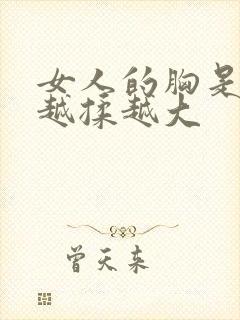 女人的胸是
越揉越大
曾天来